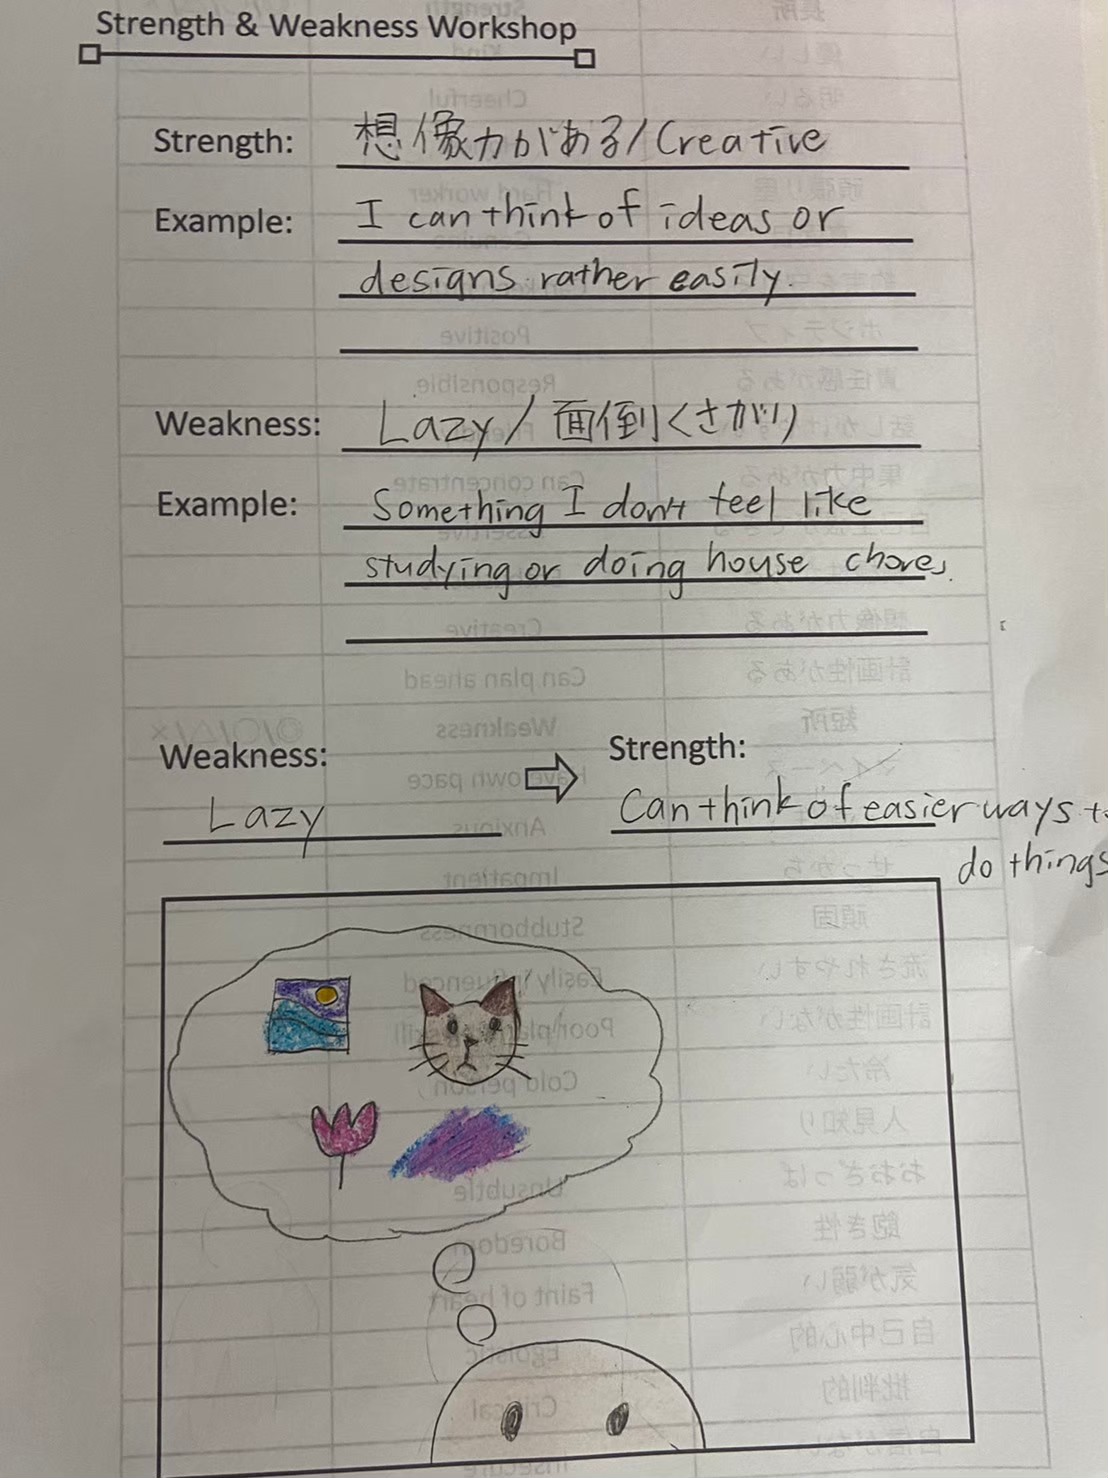 Strength & Weakness Workshop
Strength: 想像力がある/Creative
Example: I can think of ideas or
designs rather easily.
Weakness: Lazy/面倒くさがり
Example: Something I don't feel like
studying or doing house chores.
Weakness: Strength:
Lazy Can think of easier ways to
do things